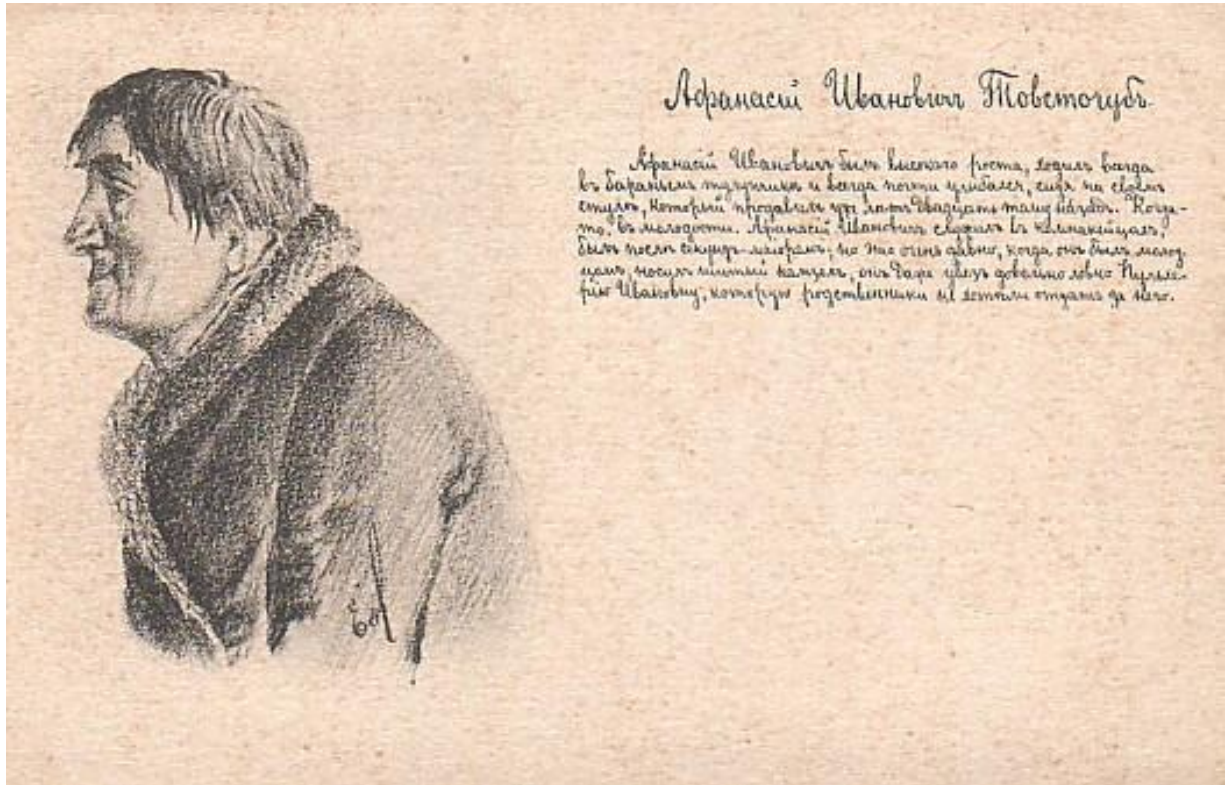 Афанасій Ивановичъ Товстогубъ.
Афанасій Ивановичъ былъ высокаго роста, ходилъ всегда
въ бараньемъ тулупчикѣ и всегда почти улыбался, сидя на своемъ
стулѣ, который продавилъ уже лѣтъ двадцать тому назадъ. Когда-
то, въ молодости, Афанасій Ивановичъ служилъ въ компанейцахъ,
былъ послѣ секундъ-маіоромъ; но это очень давно, когда онъ былъ молод-
цомъ, носилъ шитый камзолъ, онъ даже увезъ довольно ловко Пульхе-
рію Ивановну, которую родственники не хотѣли отдать за него.